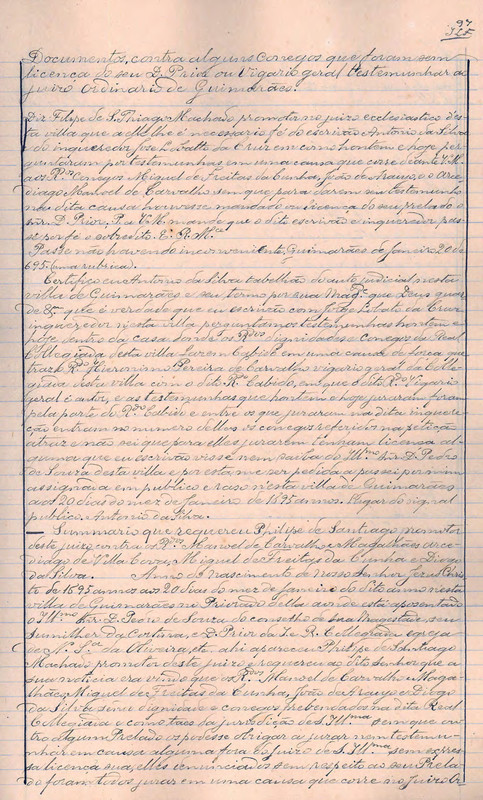 97
Documentos, contra alguns conegos que foram sem
licença do seu D. Prior ou Vigario geral testemunhar ao
juizo Ordinario de Guimarães.
Diz Filipe de S. Thiago Machado promotor no juizo ecclesiastico d'es-
ta villa que a elle lhe é necessario fé do escrivão Antonio da Silva
e do inqueredor José Lobato da Cruz em como hontem e hoje per-
guntaram por testemunhas em uma causa que corre
aos Rdos Conegos Miguel de Freitas da Cunha, João de Araujo, e o Arce-
diago Manoel de Carvalho sem que para darem seu testemunho
na dita causa houvesse mandado ou licença do seu prelado o
snr. D. Prior. P. a V. M. mande que o dito escrivão e inqueredor pas-
se por fé o sobredito. E. R. M.ce
Passe não havendo inconveniente, Guimarães de Janeiro 20 de
695. (uma rubrica).
Certifico eu Antonio da Silva tabellião do auto judicial nesta
villa de Guimarães e seu termo por sua Mag.de que Deus guar-
de &c que é verdade que eu escrivão com José Lobato da Cruz
inqueredor nesta villa perguntamos testemunhas hontem e
hoje dentro da casa donde os Rdos dignidades e conegos da Real
Collegiada desta villa fazem Cabido em uma causa de força que
traz o Rdo Jeronimo Pereira de Carvalho vigario geral da Colle-
giada desta villa com o dito Rdo Cabido, em que o dito Rdo Vigario
geral é autor, e as testemunhas que hontem e hoje juraram foram
pela parte do Rdo Cabido e entre os que juraram na dita inquere-
ção entram no numero delles os conegos referidos na petição
atraz e não sei que para elles jurarem tenham licença al-
guma que eu escrivão visse nem falta do Ill.mo snr. D. Pedro
de Souza desta villa e por esta me ser pedida a passei por mim
assignada em publico e raso nesta villa de Guimarães
aos 20 dias do mez de Janeiro de 1695 annos. Lugar do signal
publico. Antonio da Silva.
— Summario que requereu Philipe de Santiago promotor
deste juizo contra os Rdos Manoel de Carvalho e Magalhães arce-
diago de Villa Cova, Miguel de Freitas da Cunha e Diogo
da Silva. Anno do Nascimento de Nosso Senhor Jezus Chris-
to de 1695 annos aos 20 dias do mez de Janeiro do dito anno nesta
villa de Guimarães no Priorado della aonde está aposentado
o Ill.mo Snr. D. Pedro de Souza do conselho de sua Magestade, seu
Sumilher da Cortina, e D. Prior da I. e R. Collegiada egreja
de N. S.ra da Oliveira, etc. ahi appareceu Philipe de Santiago
Machado promotor deste juizo e requereu ao dito Senhor que a
sua noticia era vindo que os Rdos Manoel de Carvalho e Maga-
lhães, Miguel de Freitas da Cunha, João de Araujo e Diogo
da Silva sendo dignidade e conegos prebendados na dita Real
Collegiada e como taes da jurisdição de S. Ill.ma sem que ou-
tro algum Prelado os podesse obrigar a jurar nem testemu-
nhar em causa alguma fora do juizo de S. Ill.ma sem expres-
sa licença sua, elles denunciados sem respeito ao seu Prela-
do foram todos jurar em uma causa que corre no Juizo Or-